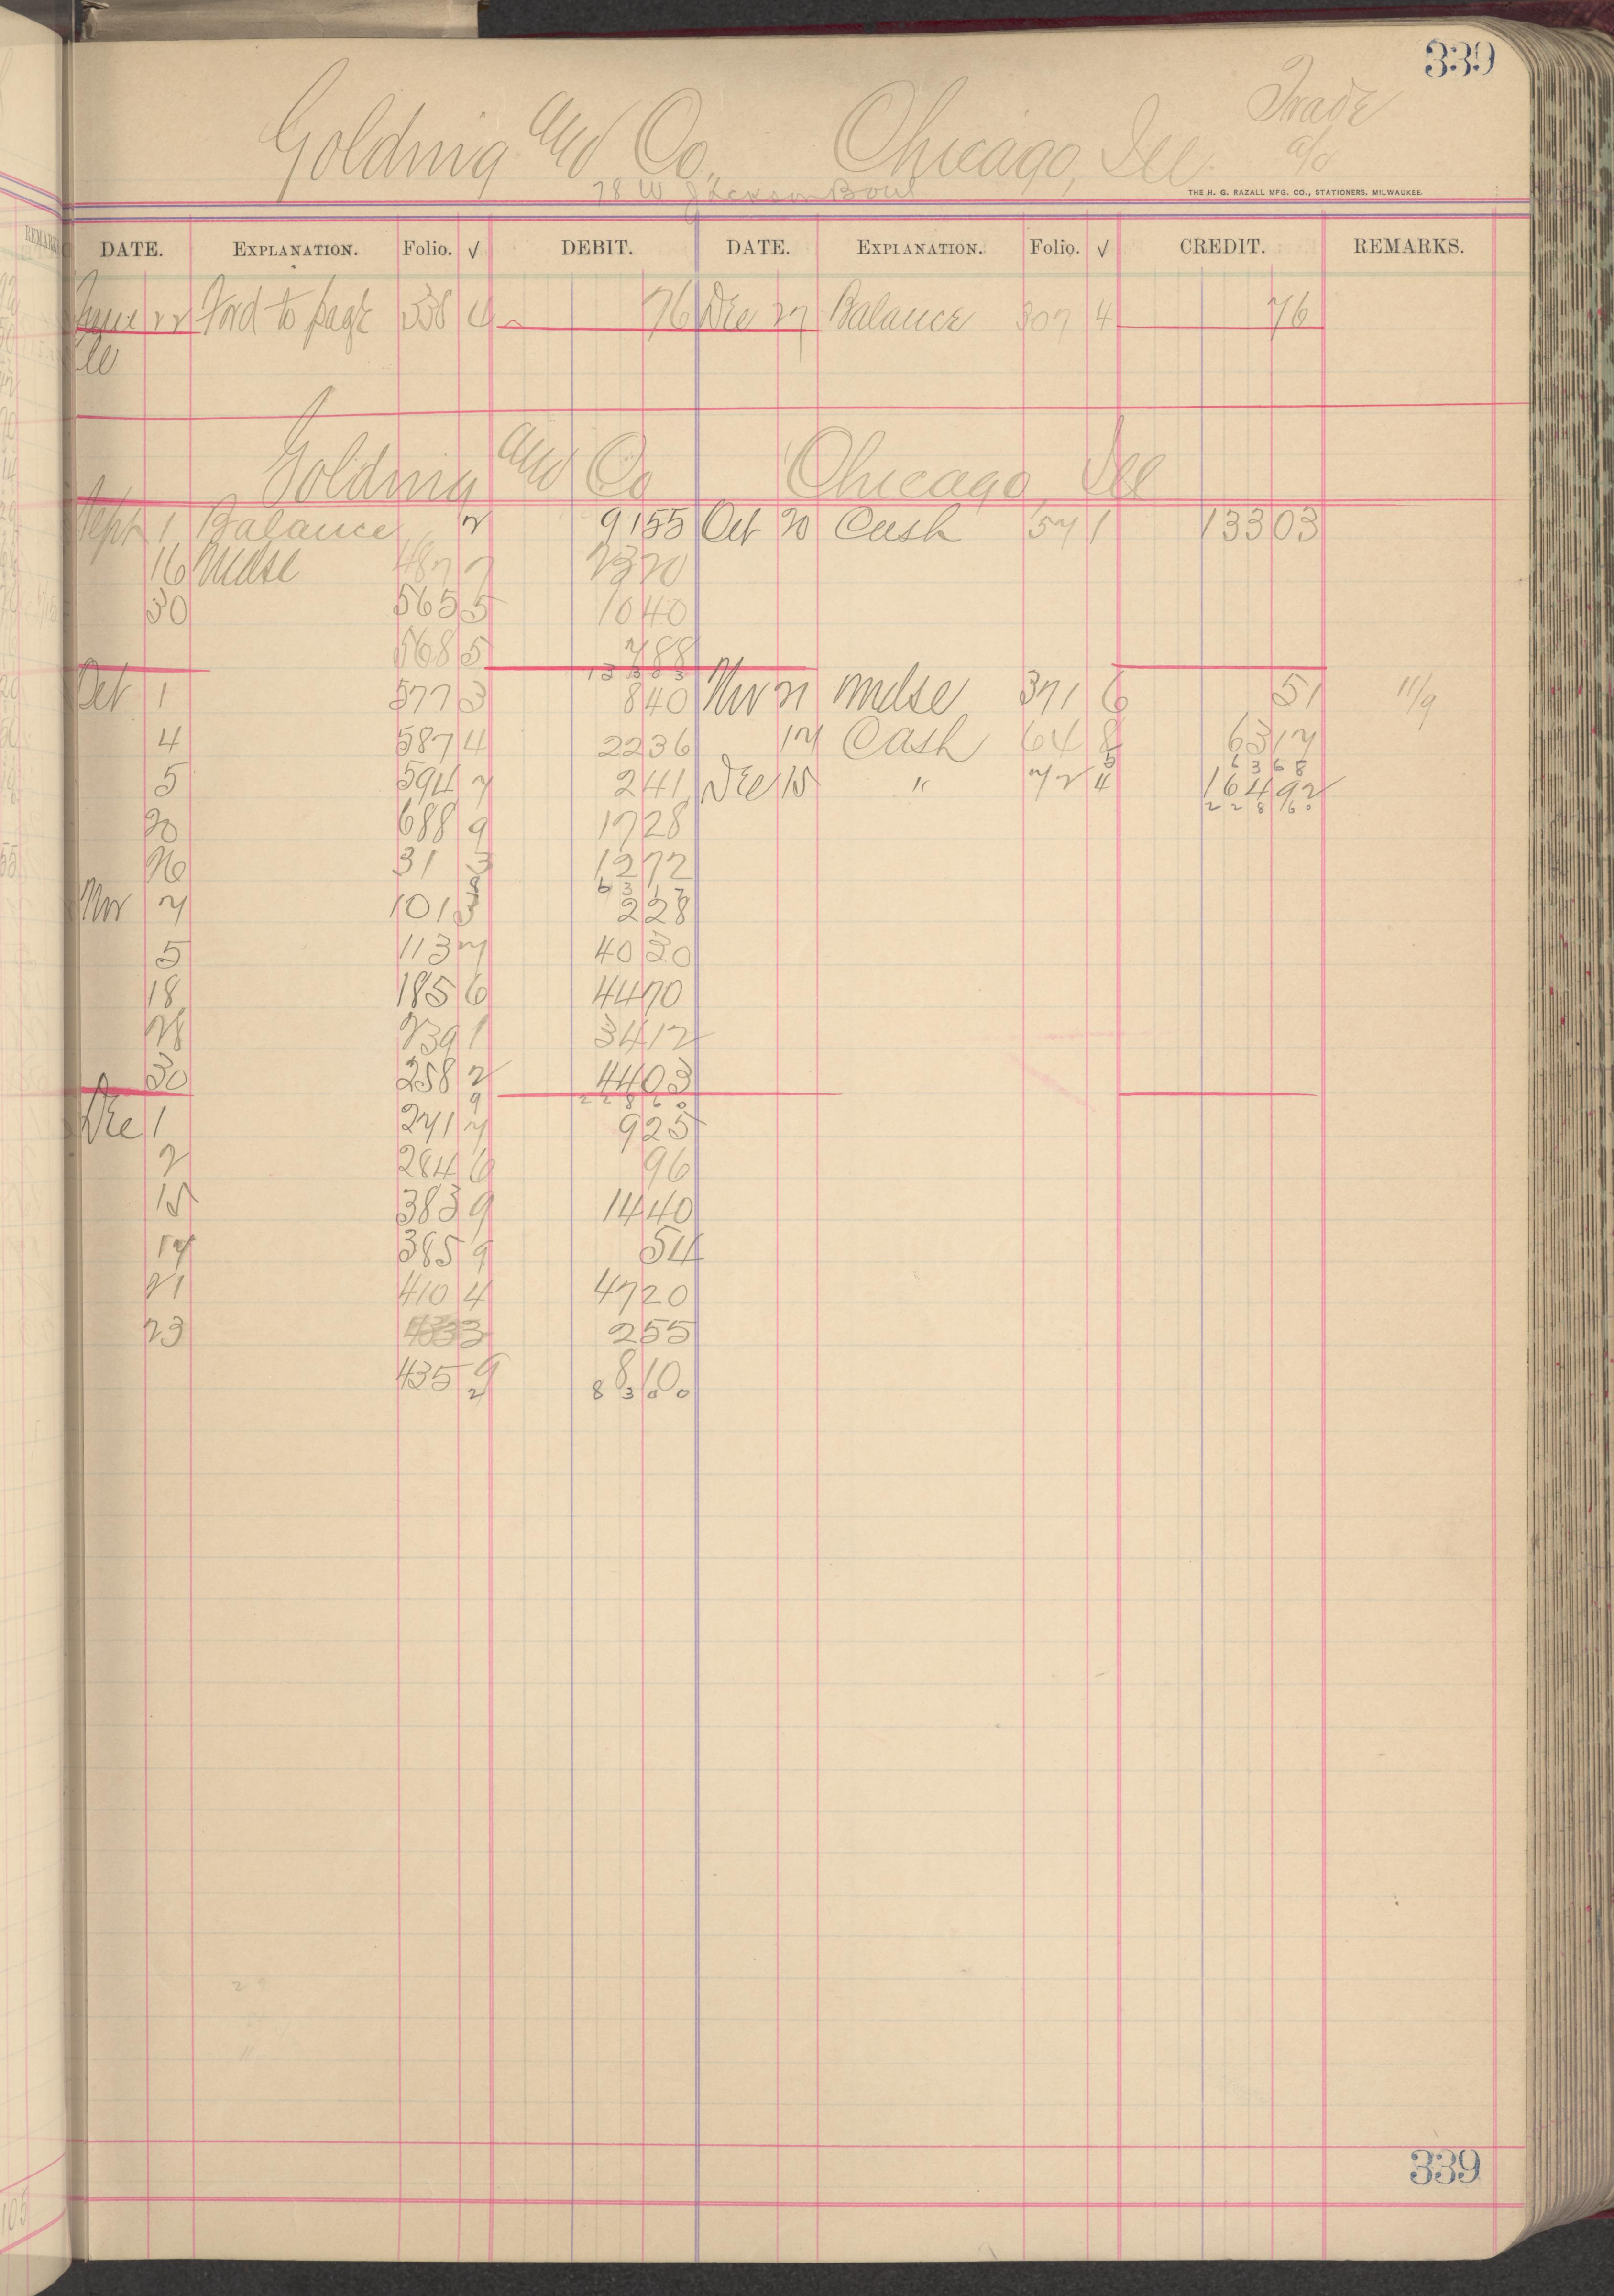 339
Golding and Co., Chicago, Ill. Trade a/c
78 W Jackson Boul
THE H. G. RAZALL MFG. CO., STATIONERS, MILWAUKEE
DATE. EXPLANATION. Folio. √ DEBIT. DATE. EXPLANATION. Folio. √ CREDIT. REMARKS.
June 22 Ford to page 338 4 76 Dec 27 Balance 307 4 76
Golding and Co Chicago, Ill
Sept 1 Balance 2 91 55 Oct 20 Cash 57 1 133 03
16 Mdse 487 7 23 20
30 565 5 10 40
568 5 7 88
133 03
Oct 1 577 3 8 40 Nov 21 Mdse 371 6 51 11/9
4 587 4 22 36 17 Cash 64 8 63 17
63 68
5 594 7 2 41 Dec 15 " 72 4 164 92
228 60
20 688 9 17 28
26 31 3 12 72
63 17
Nov 7 101 3 2 28
5 113 7 40 30
18 185 6 44 70
28 239 1 34 12
30 258 2 44 03
228 60
Dec 1 271 7 9 25
2 284 6 96
15 383 9 14 40
17 385 9 54
21 410 4 47 20
23 433 3 2 55
435 9 8 10
2 83 00
339